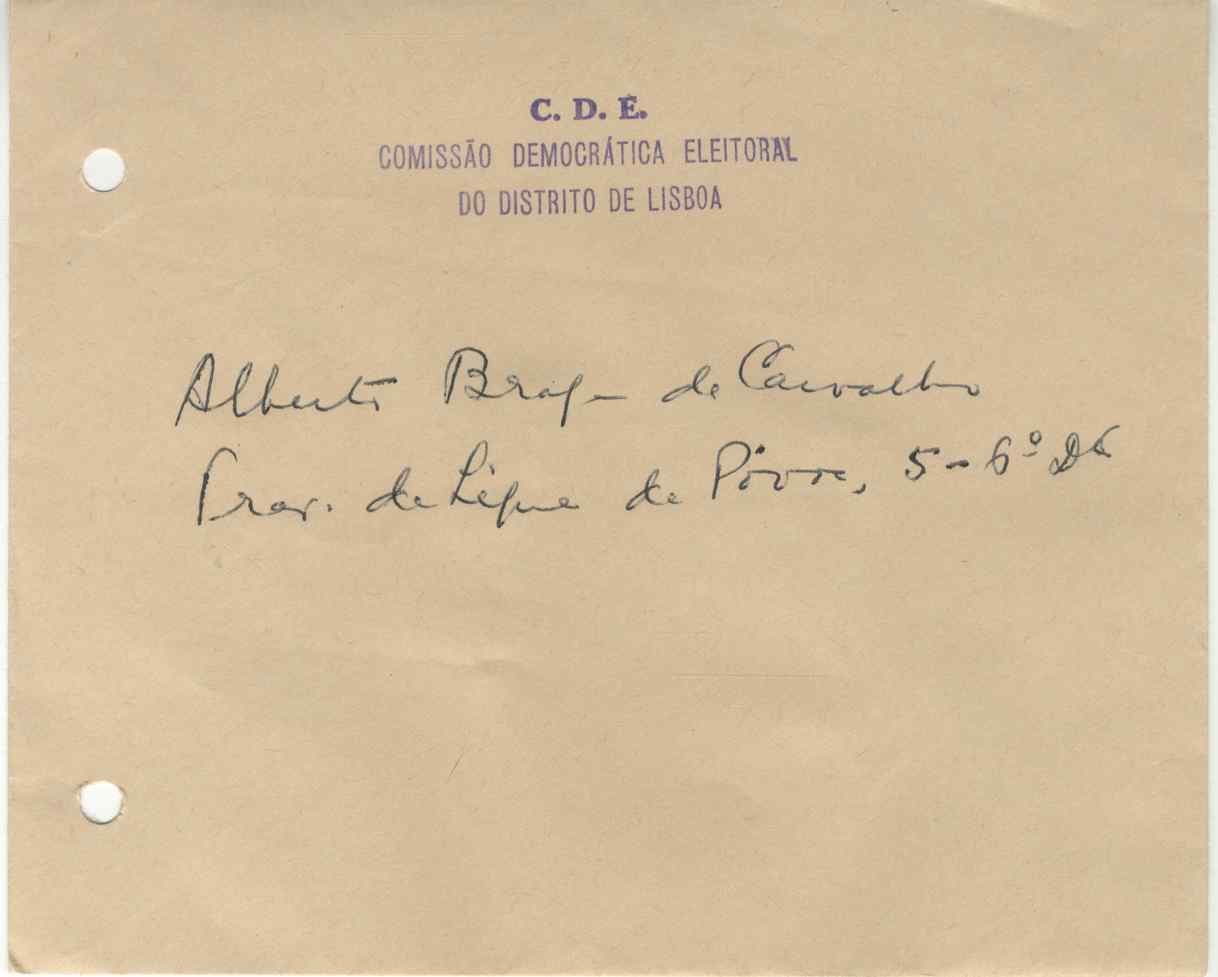 C. D. E.
COMISSÃO DEMOCRÁTICA ELEITORAL
DO DISTRITO DE LISBOA
Alberto Braga de Carvalho
Trav. da Légua da Póvoa, 5-6º Dt